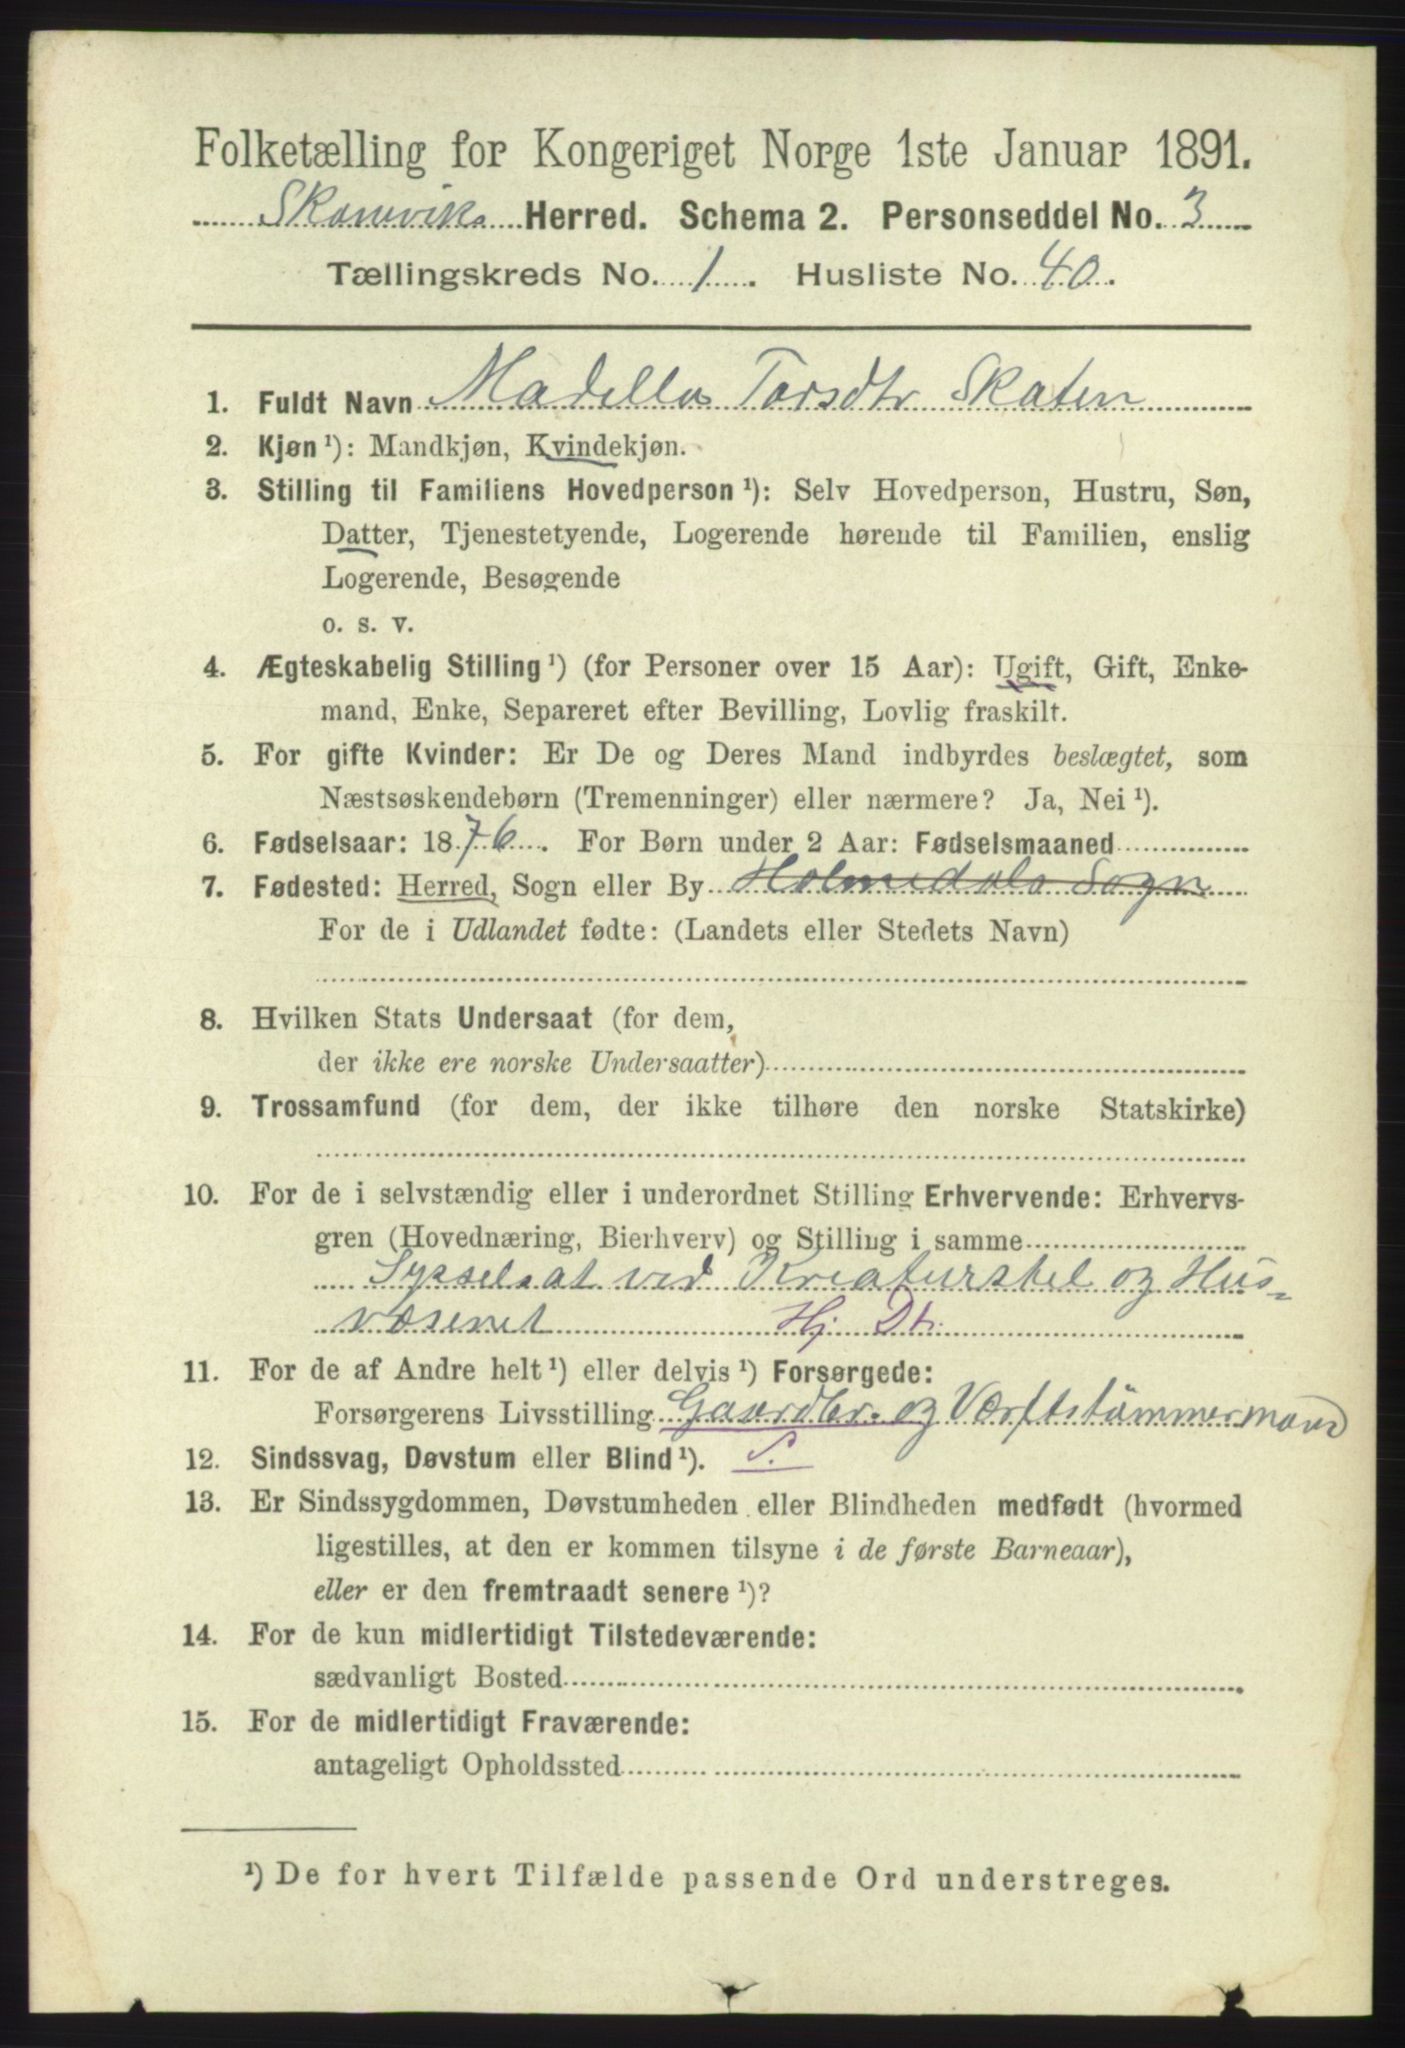 Folketælling for Kongeriget Norge 1ste Januar 1891.
Skoneviks Herred. Schema 2. Personseddel No. 3
Tællingskreds No. 1. Husliste No. 40.
1. Fuldt Navn Madella Torsdtr Skaten
2. Kjøn ¹): Mandkjøn, Kvindekjøn.
3. Stilling til Familiens Hovedperson ¹): Selv Hovedperson, Hustru, Søn,
Datter, Tjenestetyende, Logerende hørende til Familien, enslig
Logerende, Besøgende
o. s. v.
4. Ægteskabelig Stilling ¹) (for Personer over 15 Aar): Ugift, Gift, Enke-
mand, Enke, Separeret efter Bevilling, Lovlig fraskilt.
5. For gifte Kvinder: Er De og Deres Mand indbyrdes beslægtet, som
Næstsøskendebørn (Tremenninger) eller nærmere? Ja, Nei ¹).
6. Fødselsaar: 1876. For Børn under 2 Aar: Fødselsmaaned
7. Fødested: Herred, Sogn eller By Holmedals Sogn
For de i Udlandet fødte: (Landets eller Stedets Navn)
8. Hvilken Stats Undersaat (for dem,
der ikke ere norske Undersaatter)
9. Trossamfund (for dem, der ikke tilhøre den norske Statskirke)
10. For de i selvstændig eller i underordnet Stilling Erhvervende: Erhvervs-
gren (Hovednæring, Bierhverv) og Stilling i samme
Sysselsat ved Kreaturstel og Hus-
væsenet Hj. Dt.
11. For de af Andre helt ¹) eller delvis ¹) Forsørgede:
Forsørgerens Livsstilling Gaardbr. og Værftstömmermand
12. Sindssvag, Døvstum eller Blind ¹). S.
13. Er Sindssygdommen, Døvstumheden eller Blindheden medfødt (hvormed
ligestilles, at den er kommen tilsyne i de første Barneaar),
eller er den fremtraadt senere ¹)?
14. For de kun midlertidigt Tilstedeværende:
sædvanligt Bosted
15. For de midlertidigt Fraværende:
antageligt Opholdssted
¹) De for hvert Tilfælde passende Ord understreges.